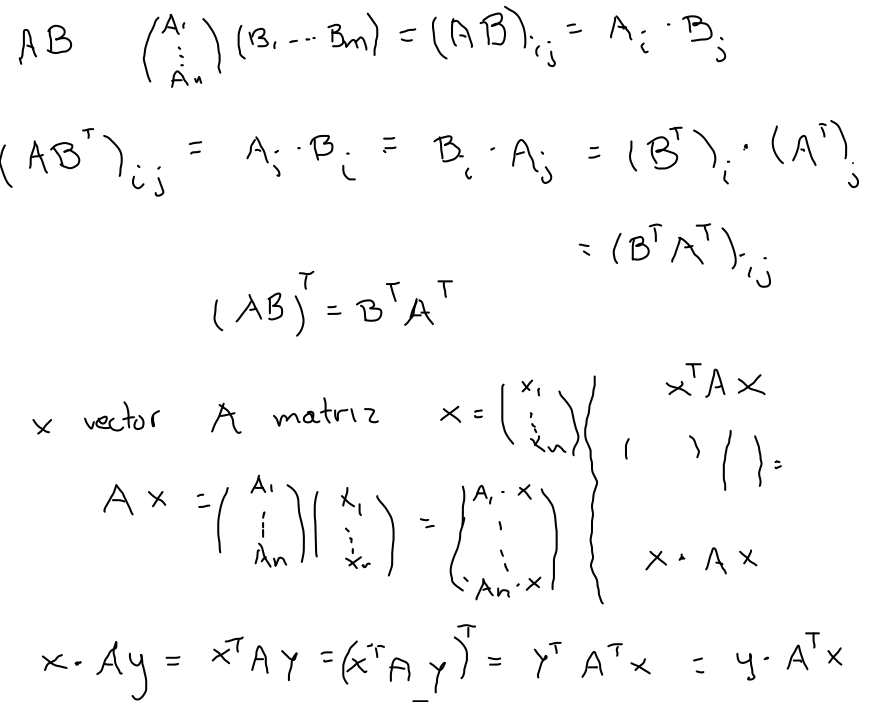 AB (A₁ ⋮ Aₙ) (B₁ --- Bm) = (AB)ᵢⱼ = Aᵢ · Bⱼ
(ABᵀ)ᵢⱼ = Aⱼ · Bᵢ = Bᵢ · Aⱼ = (Bᵀ)ᵢ · (Aᵀ)ⱼ
= (BᵀAᵀ)ᵢⱼ
(AB)ᵀ = BᵀAᵀ
x vector A matriz x = (x₁ ⋮ xₙ)
xᵀAx
( ) ( ) =
Ax = (A₁ ⋮ Aₙ) (x₁ ⋮ xₙ) = (A₁ · x ⋮ Aₙ · x)
x · Ax
x · Ay = xᵀAy = (xᵀAy)ᵀ = yᵀAᵀx = y · Aᵀx